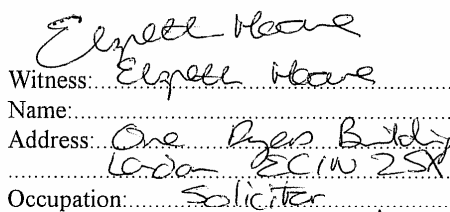 Elspeth Hoare
Witness: Elspeth Hoare
Name:
Address: One Dyers Building
London EC1N 2SX
Occupation: Solicitor